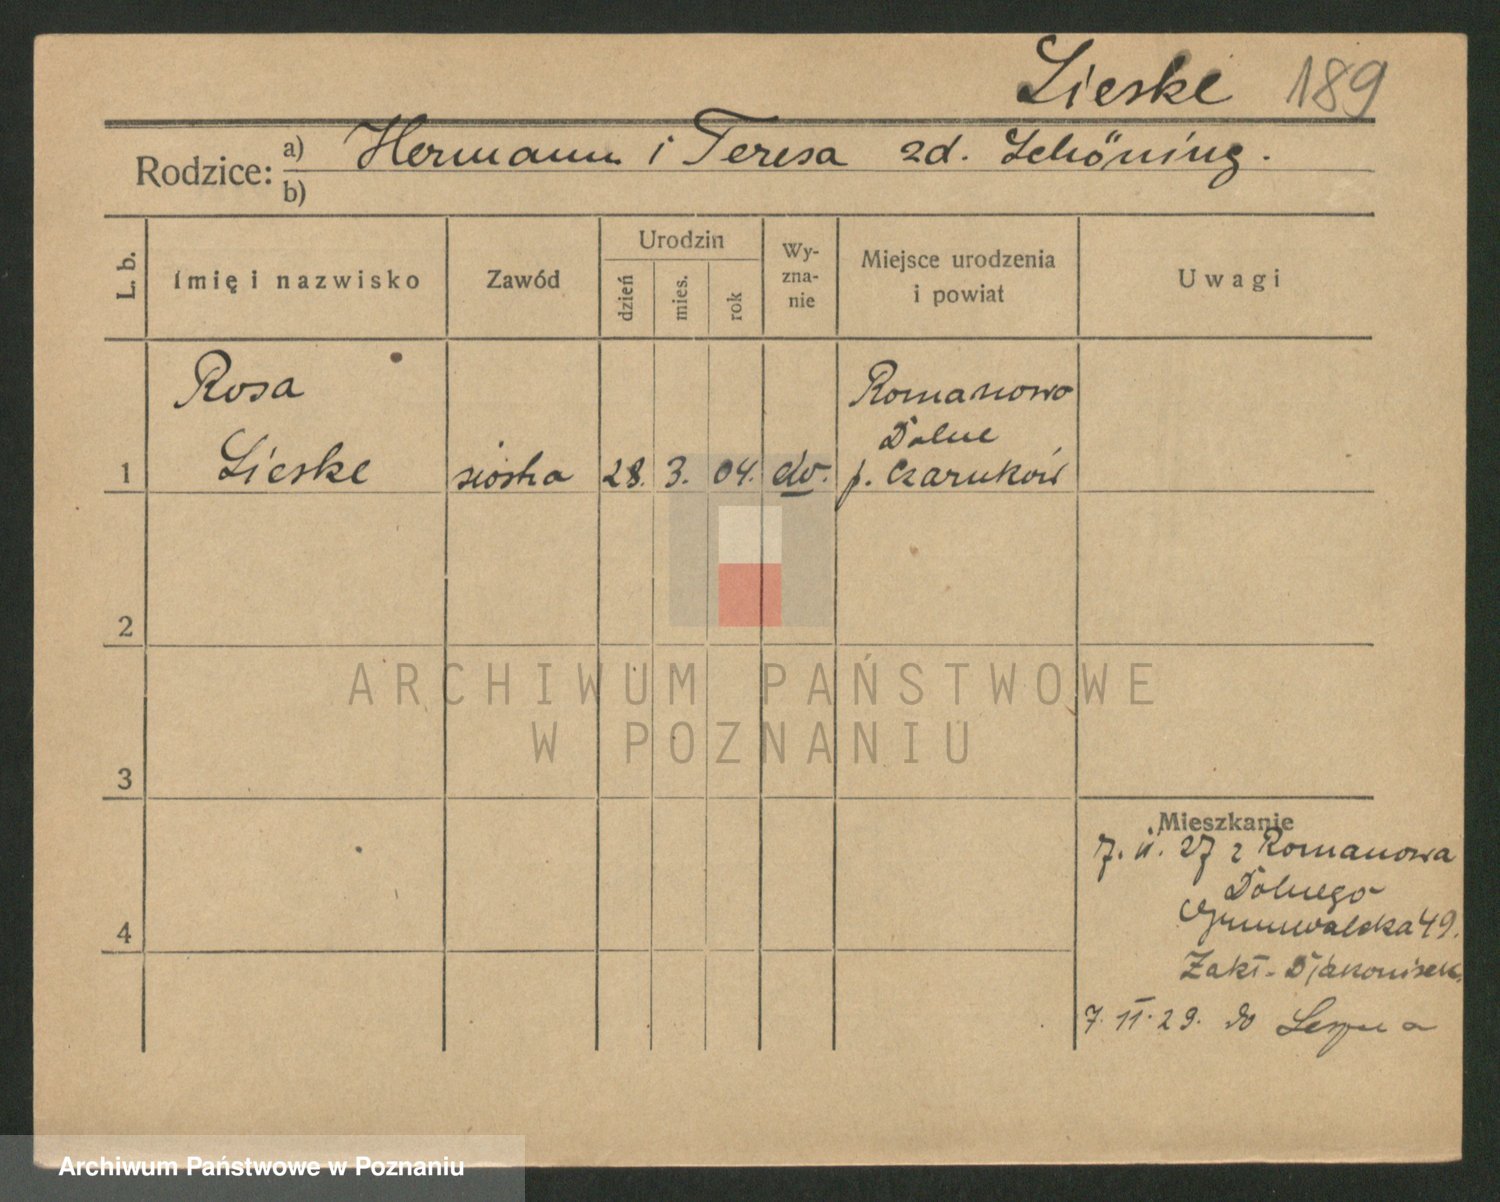 Lieske 189
Rodzice: a) Hermann i Teresa zd. Schöning.
b)
L. b.
Imię i nazwisko
Zawód
Urodzin
dzień
mies.
rok
Wy-
zna-
nie
Miejsce urodzenia
i powiat
Uwagi
Rosa
Lieske
1
siostra
28. 3. 04.
ew.
Romanowo
Dolne
p. Czarnków
2
3
4
Mieszkanie
7. II. 27 z Romanowa
Dolnego
Grunwaldzka 49.
Zakł. Djakonisek
7. II. 29. do Leszna
ARCHIWUM PAŃSTWOWE
W POZNANIU
Archiwum Państwowe w Poznaniu